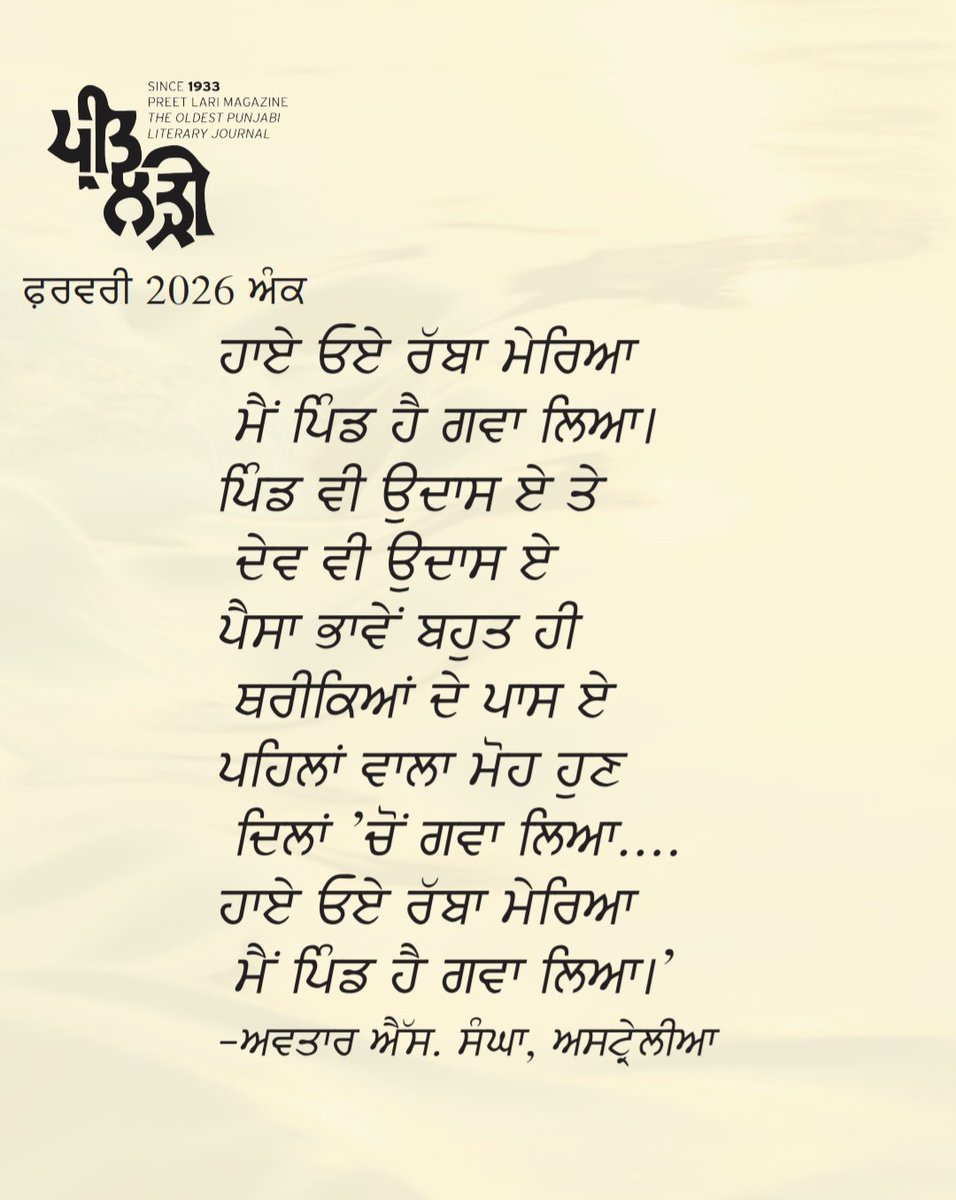 SINCE 1933
PREET LARI MAGAZINE
THE OLDEST PUNJABI
LITERARY JOURNAL
ਪ੍ਰੀਤ
ਲੜੀ
ਫ਼ਰਵਰੀ 2026 ਅੰਕ
ਹਾਏ ਓਏ ਰੱਬਾ ਮੇਰਿਆ
ਮੈਂ ਪਿੰਡ ਹੈ ਗਵਾ ਲਿਆ।
ਪਿੰਡ ਵੀ ਉਦਾਸ ਏ ਤੇ
ਦੇਵ ਵੀ ਉਦਾਸ ਏ
ਪੈਸਾ ਭਾਵੇਂ ਬਹੁਤ ਹੀ
ਥਰੀਕਿਆਂ ਦੇ ਪਾਸ ਏ
ਪਹਿਲਾਂ ਵਾਲਾ ਮੋਹ ਹੁਣ
ਦਿਲਾਂ ’ਚੋਂ ਗਵਾ ਲਿਆ....
ਹਾਏ ਓਏ ਰੱਬਾ ਮੇਰਿਆ
ਮੈਂ ਪਿੰਡ ਹੈ ਗਵਾ ਲਿਆ।’
-ਅਵਤਾਰ ਐੱਸ. ਸੰਘਾ, ਅਸਟ੍ਰੇਲੀਆ